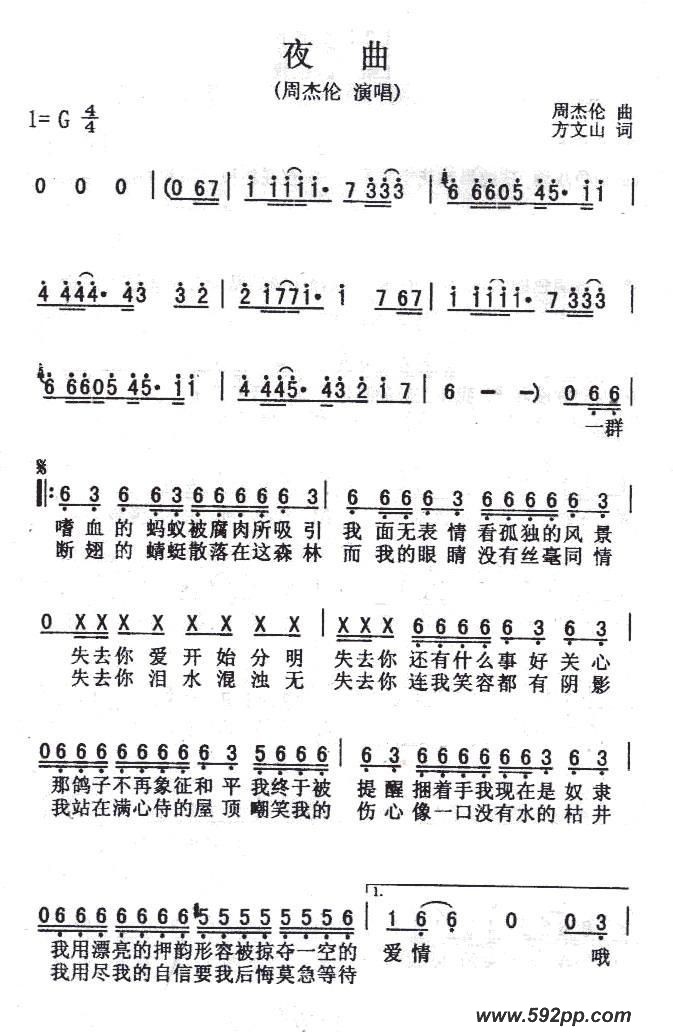 夜 曲
(周杰伦 演唱)
1= G 4/4
周杰伦 曲
方文山 词
0 0 0 | (0 67 | i iiii· 7 333 | 6 6605 45· ii |
4 444· 43 32 | 2 i77i· i 7 67 | i iiii· 7 333 |
6 6605 45· ii | 4 445· 43 2 i 7 | 6 - -) 0 66 |
一群
6 3 6 63 6666 6 3 | 6 66 66 6666 6 3 |
嗜血的 蚂蚁被腐肉所吸引 我 面无表情 看孤独的风景
断翅的 蜻蜓散落在这森林 而 我的眼睛 没有丝毫同情
0 XX X X X X X | XXX 6666 6 3 6 63 |
失去你 爱 开 始 分 明 失去你 还有什么事好关心
失去你 泪 水 混 浊 无 失去你 连我笑容都有阴影
0666 6666 6 3 5666 | 6 3 6666 6663 6 63 |
那鸽子不再象征和平我终于被 提醒 捆着手我现在是 奴 隶
我站在满心侍的屋顶嘲笑我的 伤心像一口没有水的 枯 井
0666 6666 5555 5556 | 1. 1 66 0 0 03 |
我用漂亮的押韵形容被掠夺一空的 爱情 哦
我用尽我的自信要我后悔莫急等待
www.592pp.com